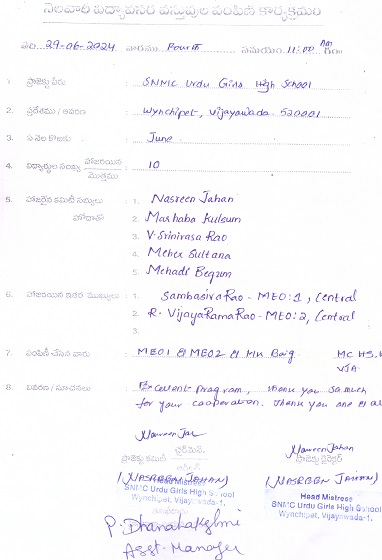 నెలవారీ విద్యావసర వస్తువుల పంపిణీ కార్యక్రమం
తేది 29-06-2024 వారము Fourth సమయం 11:00 AM
1. ప్రాజెక్టు పేరు : SNMC Urdu Girls High School
2. ప్రదేశము / ఆవరణ : Wynchipet, Vijayawada 520001
3. ఏ నెల కొఱకు : June
4. విద్యార్థుల సంఖ్య హాజరయిన / మొత్తము : 10
5. హాజరైన కమిటీ సభ్యులు : 1. Nasreen Jahan
హోదాతో 2. Marhaba Kulsum
3. V. Srinivasa Rao
4. Meher Sultana
5. Mehadi Begum
6. హాజరయిన ఇతర ముఖ్యులు : 1. Sambasiva Rao - MEO:1, Central
2. R. Vijaya Rama Rao - MEO:2, Central
3.
7. పంపిణీ చేసిన వారు : MEO1 & MEO2 & MH Baig MC HS.
VJA
8. వివరణ / సూచనలు : Excellent Program, thank you so much
for your cooperation. Thank you one & al
Nasreen Jahan
ప్రాజెక్టు కమిటీ ఛైర్మన్,
(NASREEN JAHAN)
Head Mistress
SNMC Urdu Girls High School
Wynchipet, Vijayawada-1.
Nasreen Jahan
ప్రాజెక్ట్ డైరెక్టర్
(NASREEN JAHAN)
Head Mistress
SNMC Urdu Girls High School
Wynchipet, Vijayawada-1.
P. Dhanalakshmi
Asst. Manager